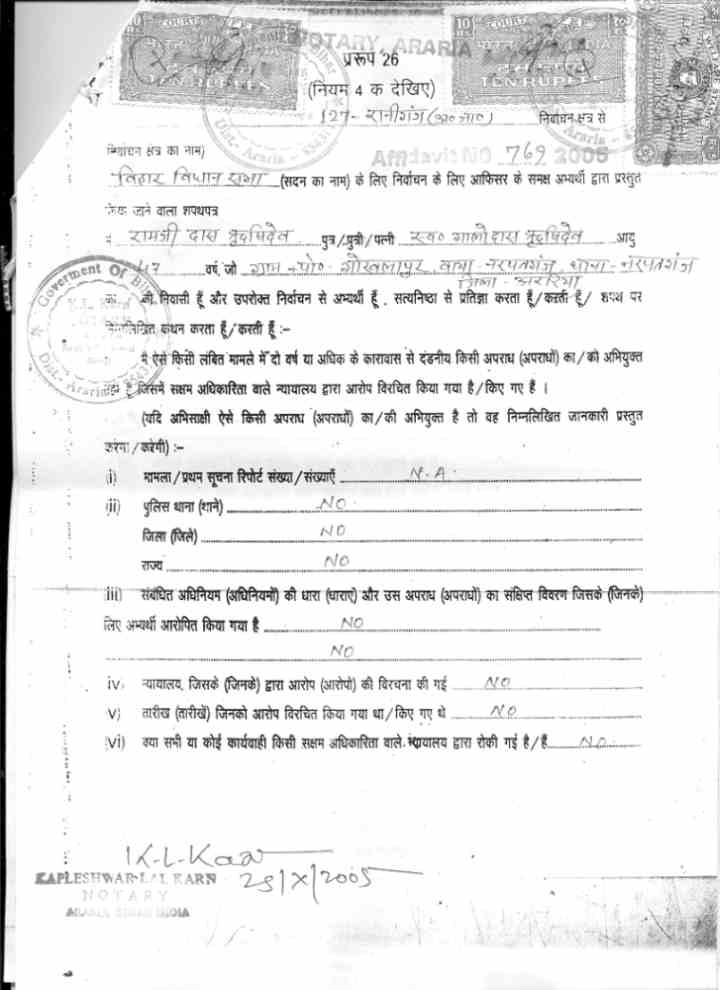 COURT
10 RS
COURT
भारत INDIA
TEN RUPEES
TEN RUPEES
NOTARY, ARARIA
प्ररूप 26
(नियम 4 क देखिए)
127- रानीगंज (अ० जा०) निर्वाचन क्षेत्र से
निर्वाचन क्षेत्र का नाम)
Affidavit NO 769 2005
बिहार विधान सभा (सदन का नाम) के लिए निर्वाचन के लिए आफिसर के समक्ष अभ्यर्थी द्वारा प्रस्तुत
किया जाने वाला शपथपत्र
रामजी दास ऋषिदेव पुत्र/पुत्री/पत्नी स्व० ऋषिदेव आयु
47 वर्ष, जो ग्राम + पो० नरपतगंज, थाना - नरपतगंज
जिला - अररिया
की निवासी हूँ और उपरोक्त निर्वाचन से अभ्यर्थी हूँ, सत्यनिष्ठा से प्रतिज्ञा करता हूँ/करती हूँ/ शपथ पर
निम्नलिखित कथन करता हूँ/करती हूँ :-
मैं ऐसे किसी लंबित मामले में दो वर्ष या अधिक के कारावास से दंडनीय किसी अपराध (अपराधों) का/की अभियुक्त
नहीं हूँ जिसमें सक्षम अधिकारिता वाले न्यायालय द्वारा आरोप विरचित किया गया है/किए गए हैं ।
(यदि अभिसाक्षी ऐसे किसी अपराध (अपराधों) का/की अभियुक्त है तो वह निम्नलिखित जानकारी प्रस्तुत
करेगा/करेगी) :-
i) मामला/प्रथम सूचना रिपोर्ट संख्या/संख्याएँ N.A.
ii) पुलिस थाना (थाने) NO
जिला (जिले) NO
राज्य NO
iii) संबंधित अधिनियम (अधिनियमों) की धारा (धाराएं) और उस अपराध (अपराधों) का संक्षिप्त विवरण जिसके (जिनके)
लिए अभ्यर्थी आरोपित किया गया है NO
NO
iv) न्यायालय, जिसके (जिनके) द्वारा आरोप (आरोपो) की विरचना की गई NO
v) तारीख (तारीखें) जिनको आरोप विरचित किया गया था/किए गए थे NO
vi) क्या सभी या कोई कार्यवाही किसी सक्षम अधिकारिता वाले न्यायालय द्वारा रोकी गई है/हैं NO
Goverment Of Bihar
Dist.- Araria
K-L-Karn
25/X/2005
KAPLESHWAR LAL KARN
NOTARY
ARARIA, BIHAR INDIA